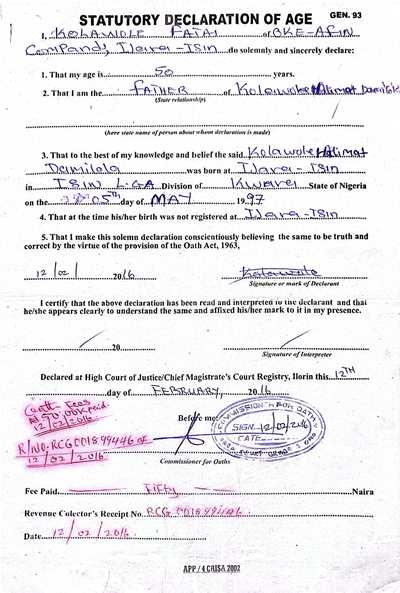 STATUTORY DECLARATION OF AGE GEN. 93
1, KOLAWOLE FATAI of OKE-AFIN
Compand, Ilara-Isin do solemnly and sincerely declare:
1. That my age is 50 years.
2. That I am the FATHER of Kolawole Halimat Damilola
(State relationship)
(here state name of person about whom declaration is made)
3. That to the best of my knowledge and belief the said Kolawole Halimat
Damilola was born at Ilara-Isin
in ISIN L.G.A Division of Kwara State of Nigeria
on the 05th day of MAY 1997
4. That at the time his/her birth was not registered at Ilara-Isin
5. That I make this solemn declaration conscientiously believing the same to be truth and
correct by the virtue of the provision of the Oath Act, 1963,
12/02/ 2016 Kolawole
Signature or mark of Declarant
I certify that the above declaration has been read and interpreted to the declarant and that
he/she appears clearly to understand the same and affixed his/her mark to it in my presence.
/ 20
Signature of Interpreter
Declared at High Court of Justice/Chief Magistrate's Court Registry, Ilorin this 12TH
day of FEBRUARY, 2016
Court Fees
paid
12/02/2016
Before me:
COMMISSION FOR OATHS
SIGN 12/02/2016
DATE
R/NO-RCG001899446 OF
12/02/2016
Commissioner for Oaths
Fee Paid Fifty Naira
Revenue Colector's Receipt No. RCG
Date 12/02/2016
APP / 4 CRISA 2002